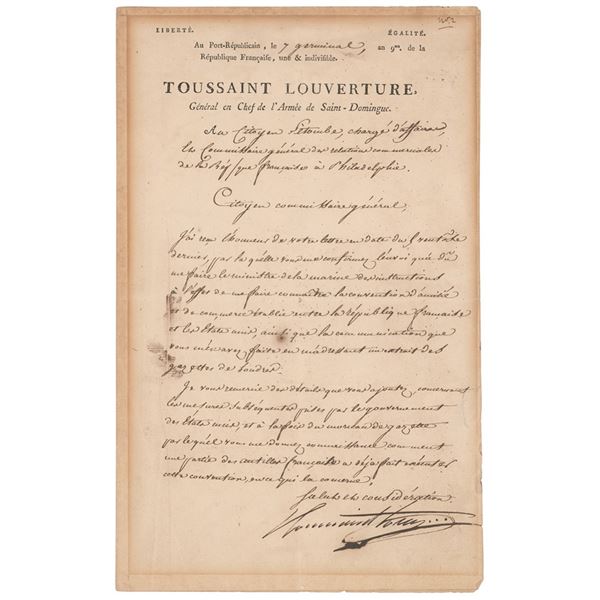 LIBERTÉ. ÉGALITÉ.
Au Port-Républicain, le 7 germinal, an 9me. de la
République Française, une & indivisible.
TOUSSAINT LOUVERTURE,
Général en Chef de l'Armée de Saint-Domingue.
Au Citoyen Létombe, chargé d'affaires,
et Commissaire général des relations commerciales
de la République française à Philadelphie.
Citoyen commissaire général,
J'ai reçu l'honneur de votre lettre en date du 5 ventôse
dernier, par laquelle vous me confirmez l'envoi que dû
me faire le ministre de la marine des instructions
à l'effet de me faire connaître la convention d'amitié
et de commerce établie entre la république française
et les Etats unis, ainsi que la communication que
vous m'en avez faite en m'adressant un extrait des
gazettes de Londres.
Je vous remercie des détails que vous ajoutez, concernant
les mesures subséquentes prises par le gouvernement
des Etats unis, et à la fois du morceau de gazette
par lequel vous me donnez connaissance comment
une partie des antilles françaises a déjà fait exécuter
cette convention, en ce qui la concerne.
Salut et considération.
Toussaint Louverture